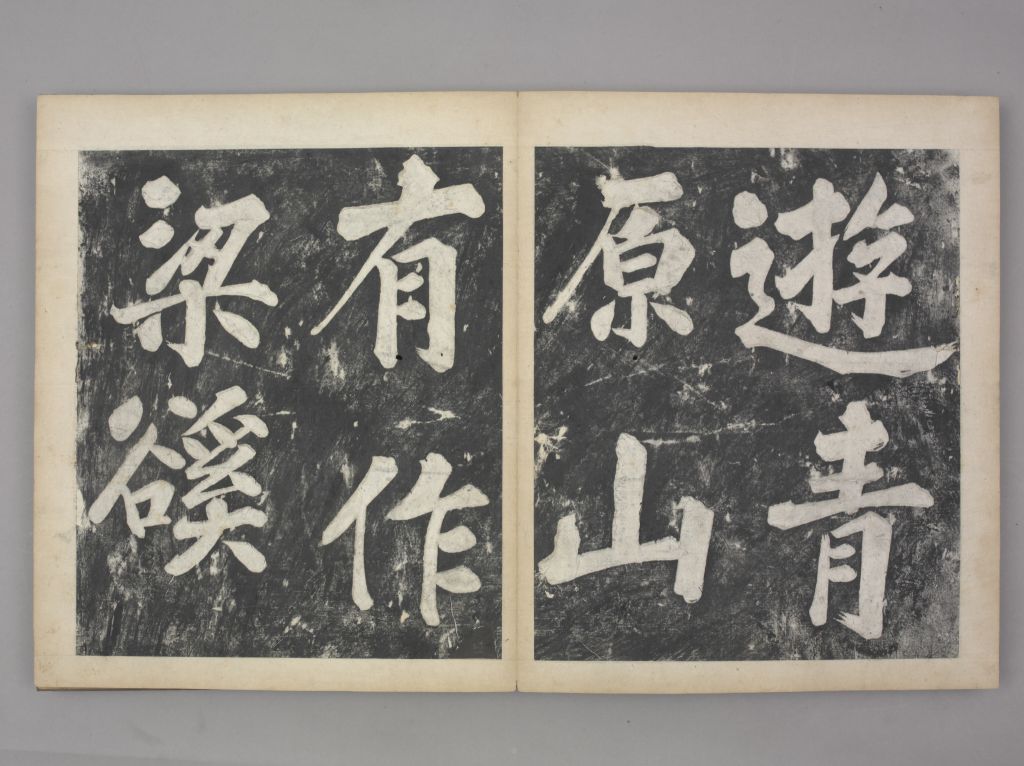 遊青
原山
有作
梁谿